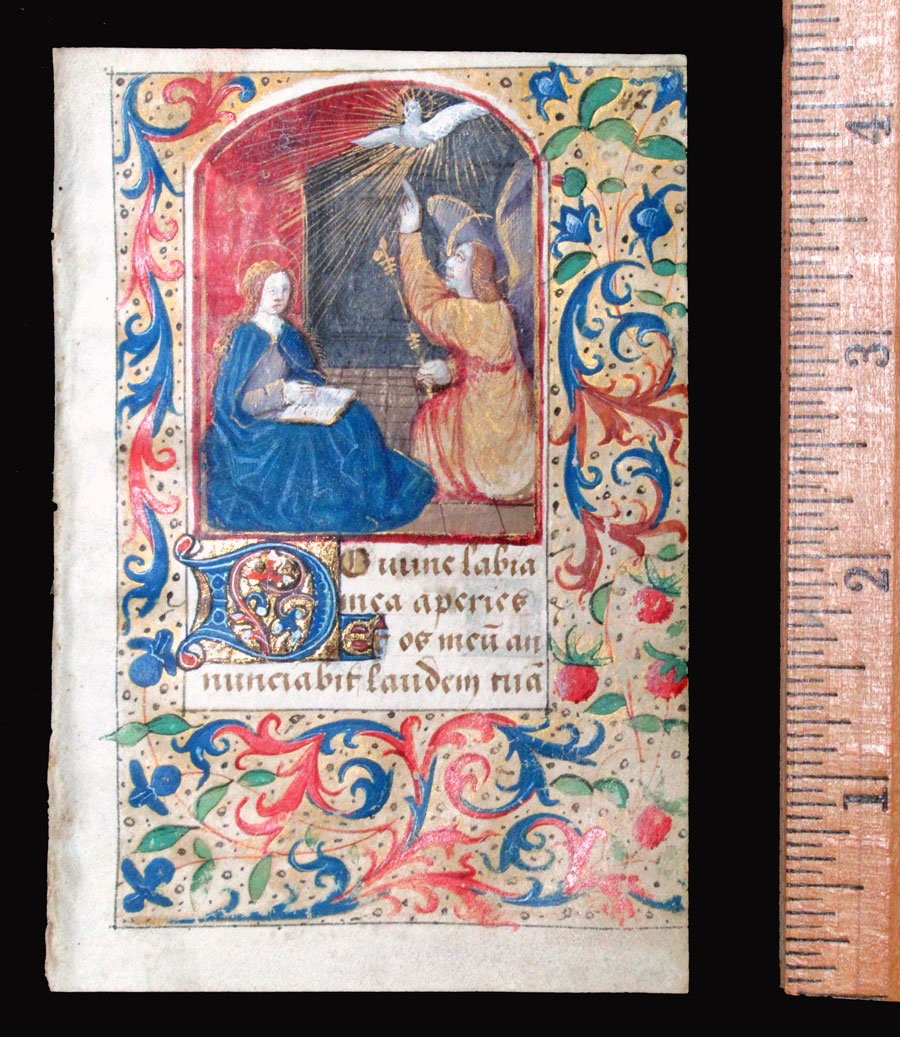 DOmine labia
mea aperies
Et os meū an
nunciabit laudem tuā
4
3
2
1